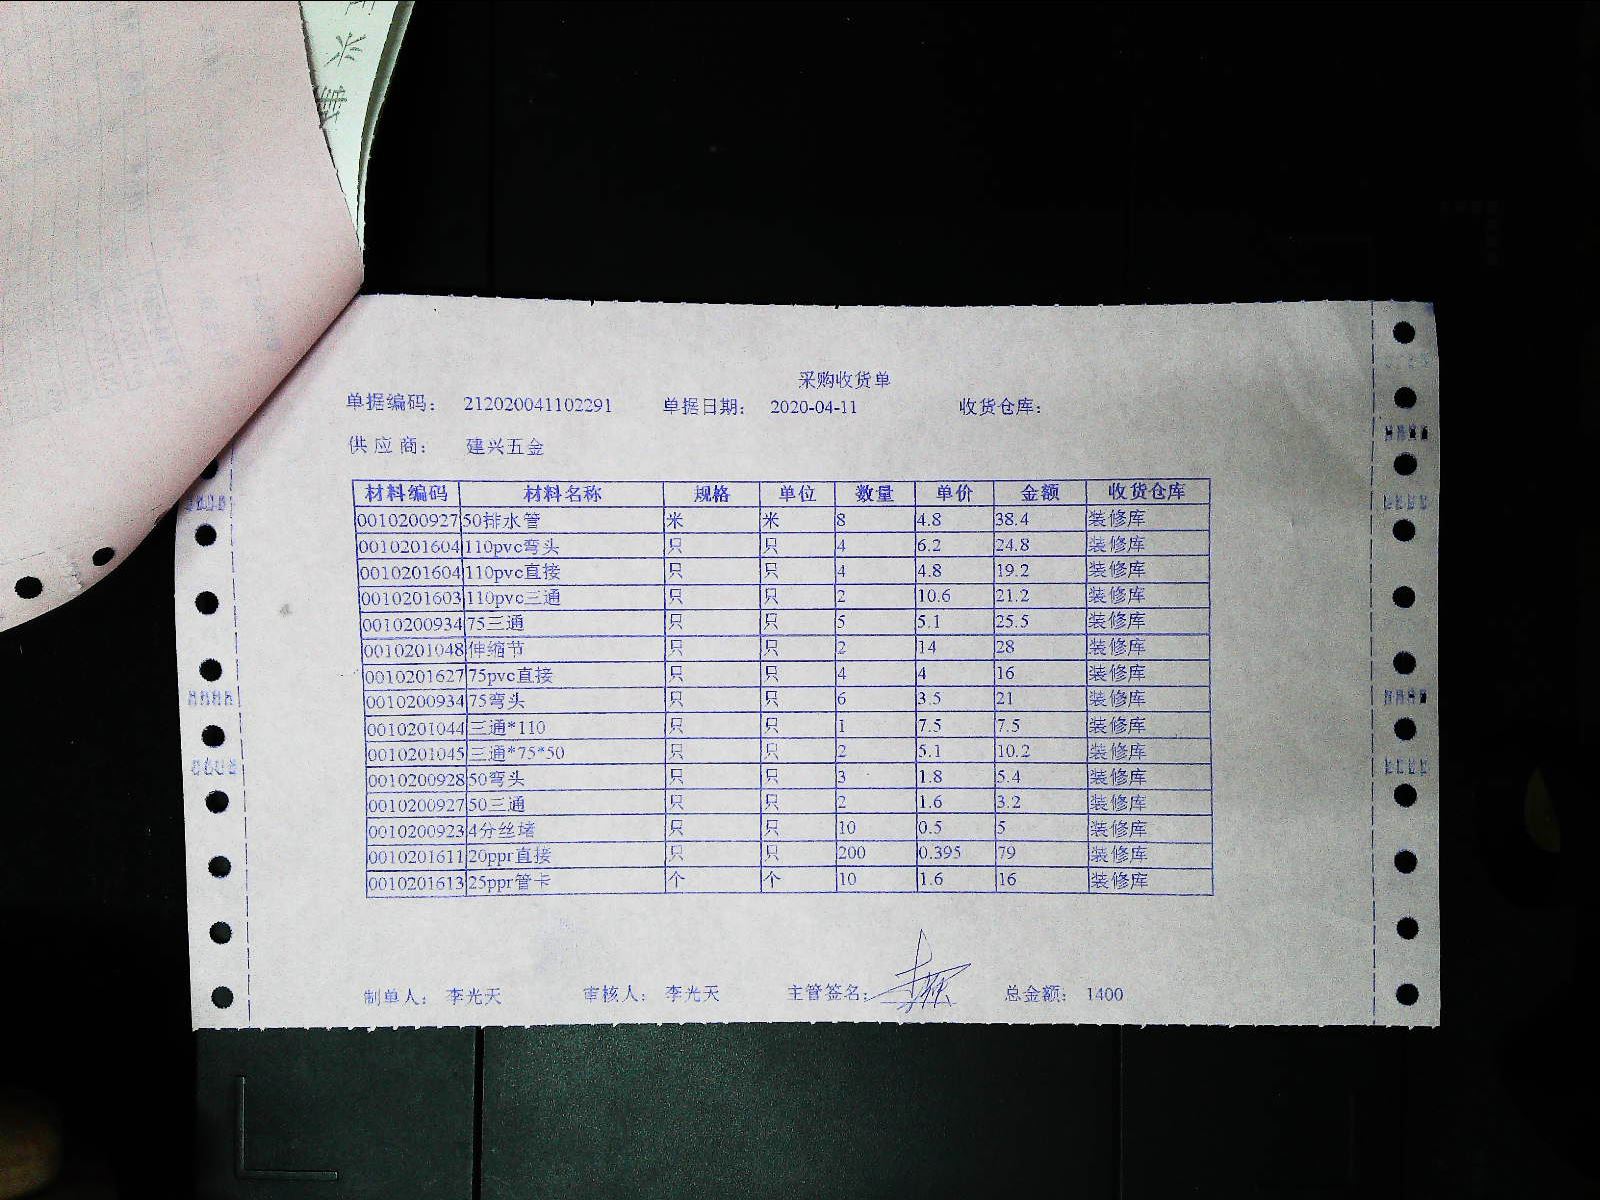 米
采购收货单
单据编码： 212020041102291 单据日期： 2020-04-11 收货仓库：
供 应 商： 建兴五金
材料编码 材料名称 规格 单位 数量 单价 金额 收货仓库
0010200927 50排水管 米 米 8 4.8 38.4 装修库
0010201604 110pvc弯头 只 只 4 6.2 24.8 装修库
0010201604 110pvc直接 只 只 4 4.8 19.2 装修库
0010201603 110pvc三通 只 只 2 10.6 21.2 装修库
0010200934 75三通 只 只 5 5.1 25.5 装修库
0010201048 伸缩节 只 只 2 14 28 装修库
0010201627 75pvc直接 只 只 4 4 16 装修库
0010200934 75弯头 只 只 6 3.5 21 装修库
0010201044 三通*110 只 只 1 7.5 7.5 装修库
0010201045 三通*75*50 只 只 2 5.1 10.2 装修库
0010200928 50弯头 只 只 3 1.8 5.4 装修库
0010200927 50三通 只 只 2 1.6 3.2 装修库
0010200923 4分丝堵 只 只 10 0.5 5 装修库
0010201611 20ppr直接 只 只 200 0.395 79 装修库
0010201613 25ppr管卡 个 个 10 1.6 16 装修库
制单人： 李光天 审核人： 李光天 主管签名： 总金额： 1400